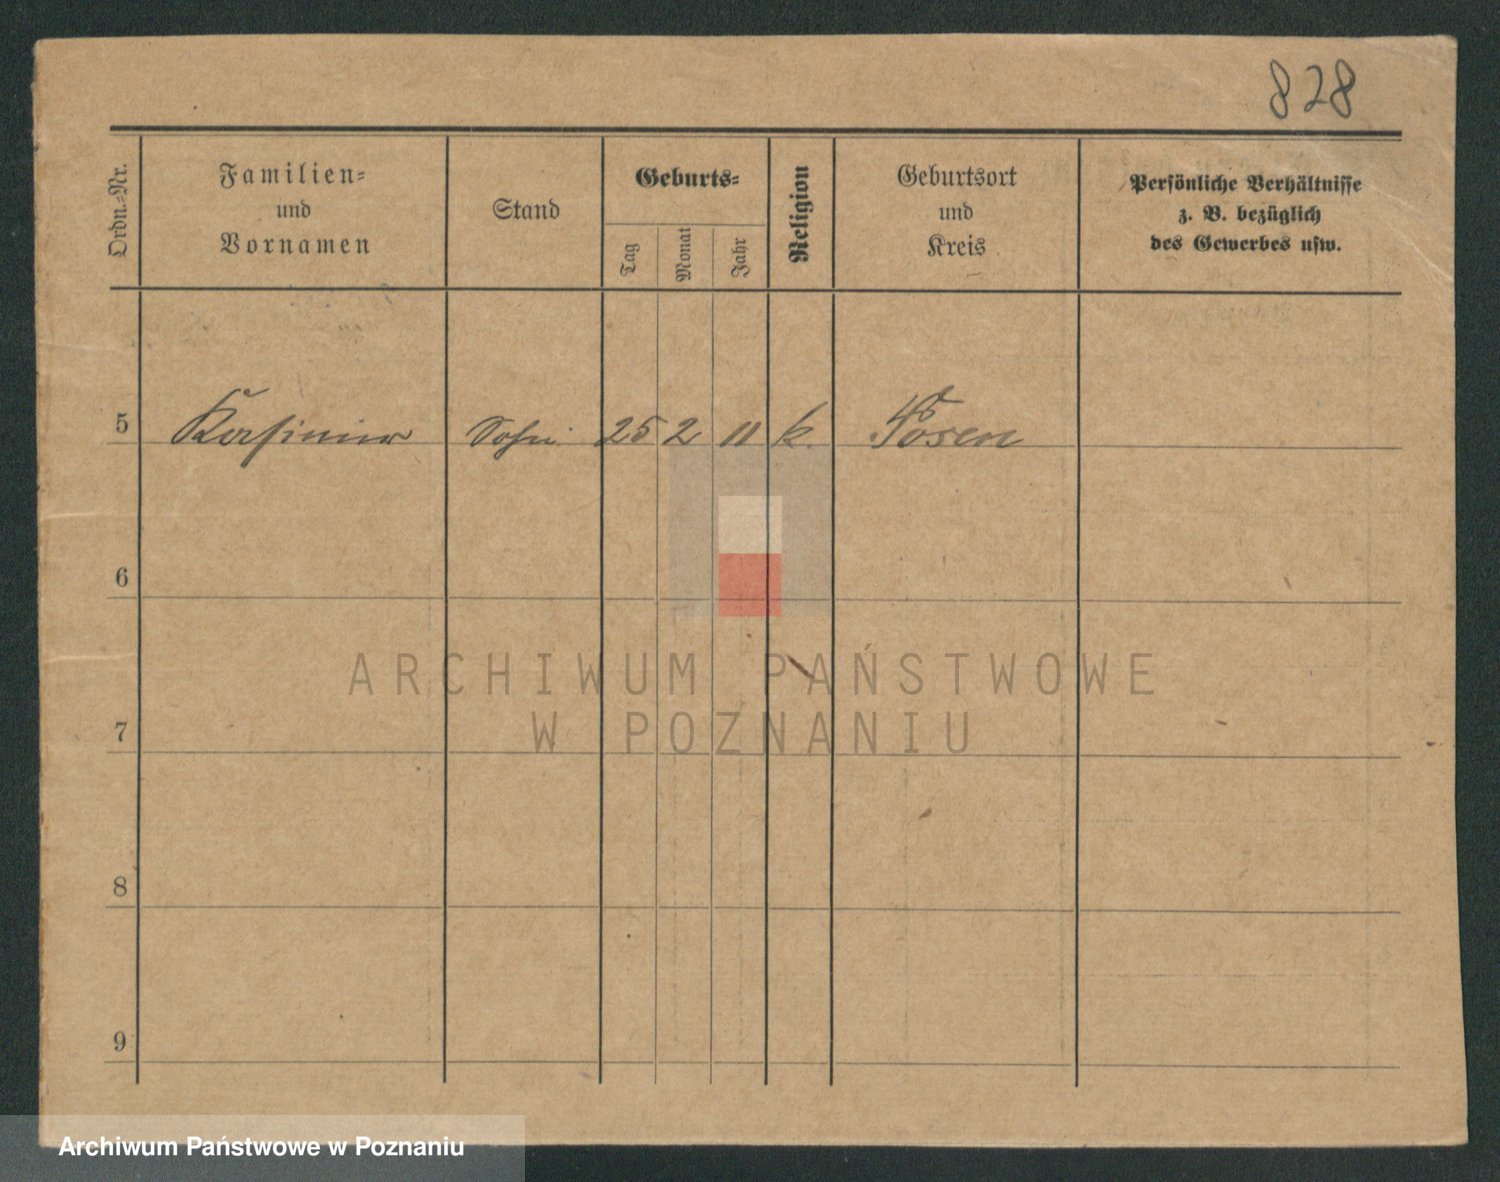 828
Ordn.-Nr.
Familien-
und
Vornamen
Stand
Geburts-
Tag
Monat
Jahr
Religion
Geburtsort
und
Kreis
Persönliche Verhältnisse
z. B. bezüglich
des Gewerbes usw.
5 Kasimir Sohn 25 2 11 k. Posen
6
ARCHIWUM PAŃSTWOWE
W POZNANIU
7
8
9
Archiwum Państwowe w Poznaniu